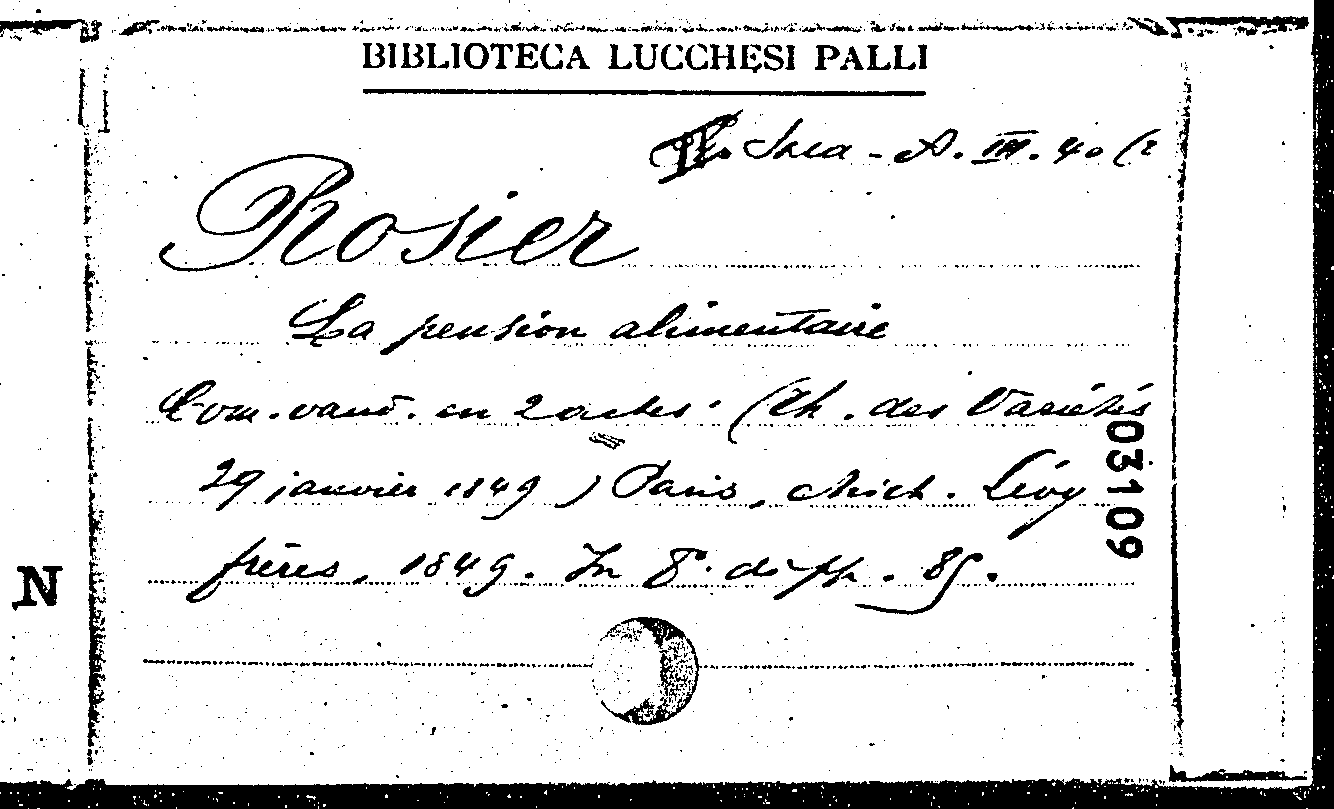 BIBLIOTECA LUCCHESI PALLI
A. III. 40 (2
Rosier
La pension alimentaire
Com. vaud. en 2 actes. (Th. des Variétés
29 janvier 1849) Paris, Mich. Lévy
frères, 1849. In 8° di pp. 85.
03109
N